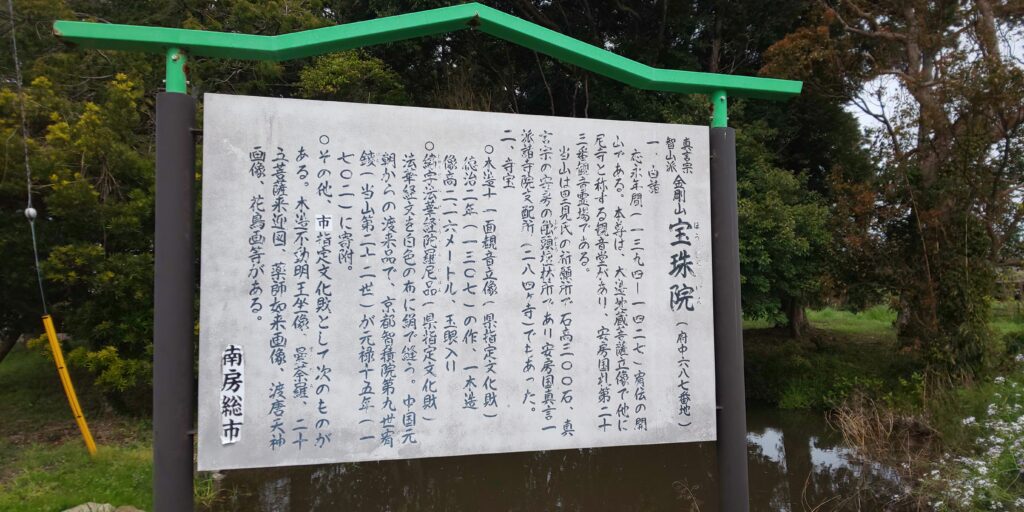 真言宗
智山派
金剛山 宝珠院 (府中六八七番地)
ほうしゅいん
一、由諸
応永年間(一三九四―一四二七)宥伝の開
山である。本尊は、木造地蔵菩薩立像で他に
尼寺と称する観音堂があり、安房国札第二十
三番観音霊場である。
当山は里見氏の祈願所で石高二〇〇石、真
言宗の安房の触頭揆扶所であり安房国真言一
派諸寺院支配所(二八四ヶ寺)でもあった。
二、寺宝
○木造十一面観音立像(県指定文化財)
徳治二年(一三〇七)の作、一木造
像高一・一六メートル、玉眼入り
○綿字法華経陀羅尼品(県指定文化財
法華経文を白色の布に絹で縫う。中国元
朝からの渡来品で、京都智積院第九世宥
鍐(当山第二十二世)が元禄十五年(一
七〇二)に寄附。
○その他、市指定文化財として次のものが
ある。木造不動明王坐像、曼荼羅、二十
五菩薩来迎図、薬師如来画像、渡唐天神
画像、花鳥画等がある。
南房総市